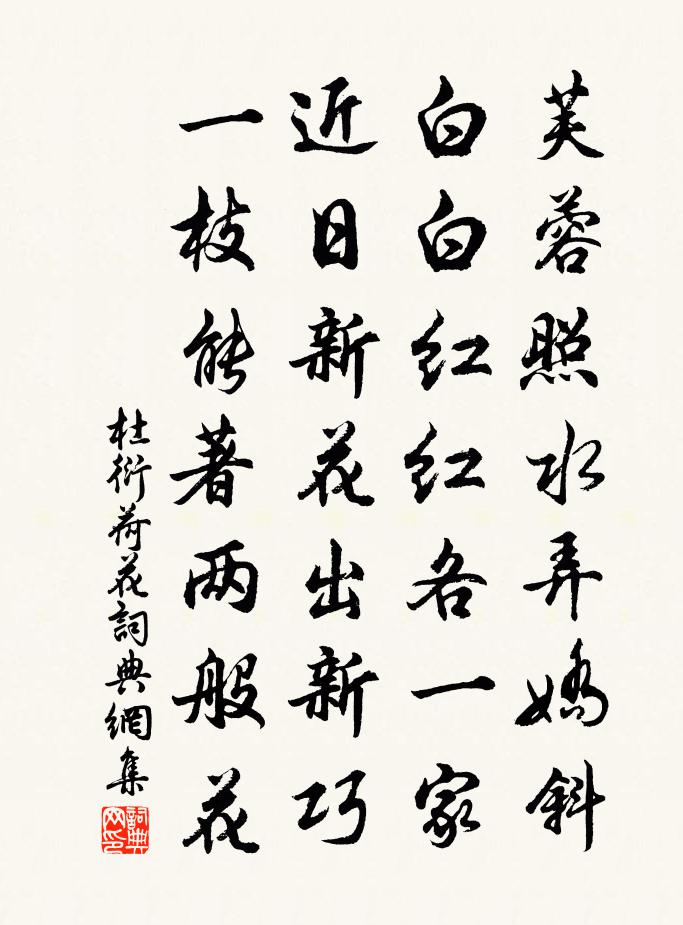 芙蓉照水弄嬌斜
白白红红各一家
近日新花出新巧
一枝能著两般花
杜衍荷花詞典網集
詞典网印